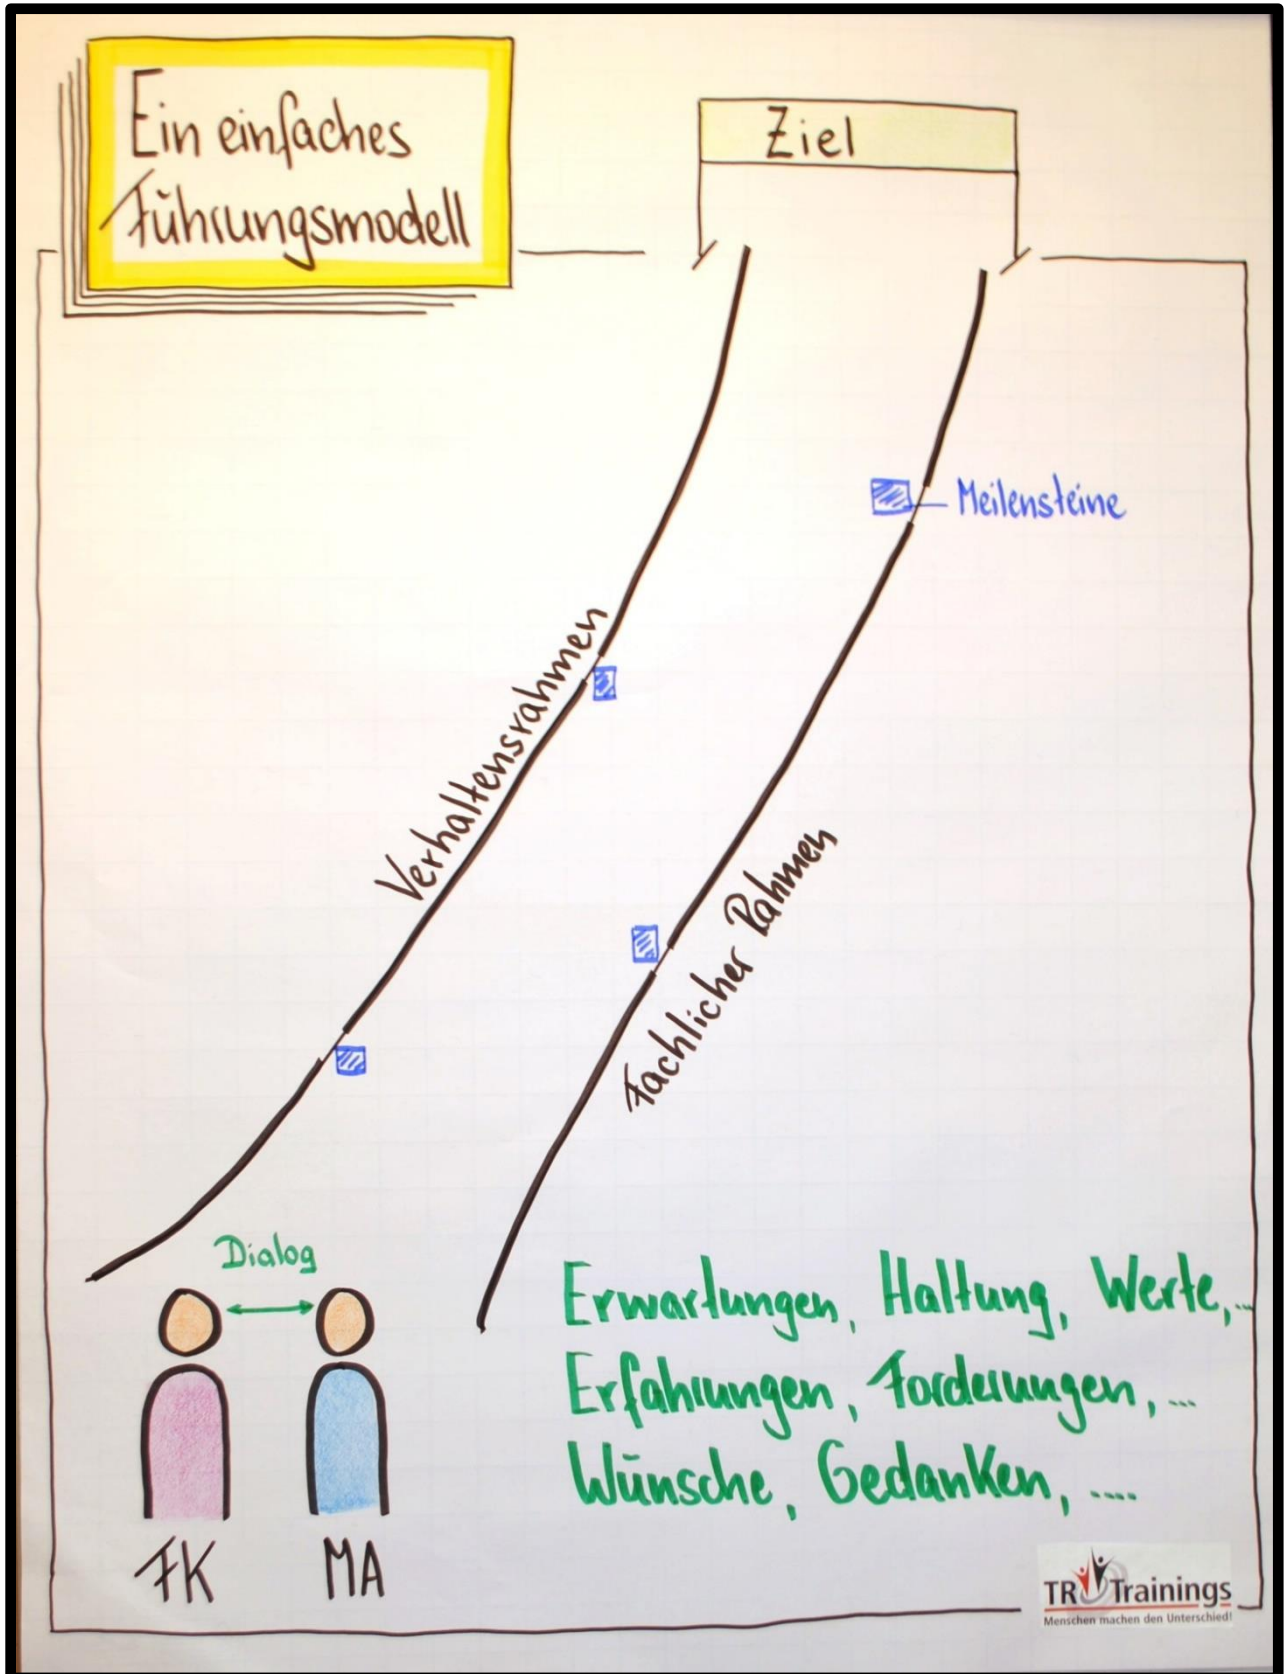 Ein einfaches
Führungsmodell
Ziel
Meilensteine
Verhaltensrahmen
Fachlicher Rahmen
Dialog
Erwartungen, Haltung, Werte,...
Erfahrungen, Forderungen, ...
Wünsche, Gedanken, ....
FK
MA
TR Trainings
Menschen machen den Unterschied!